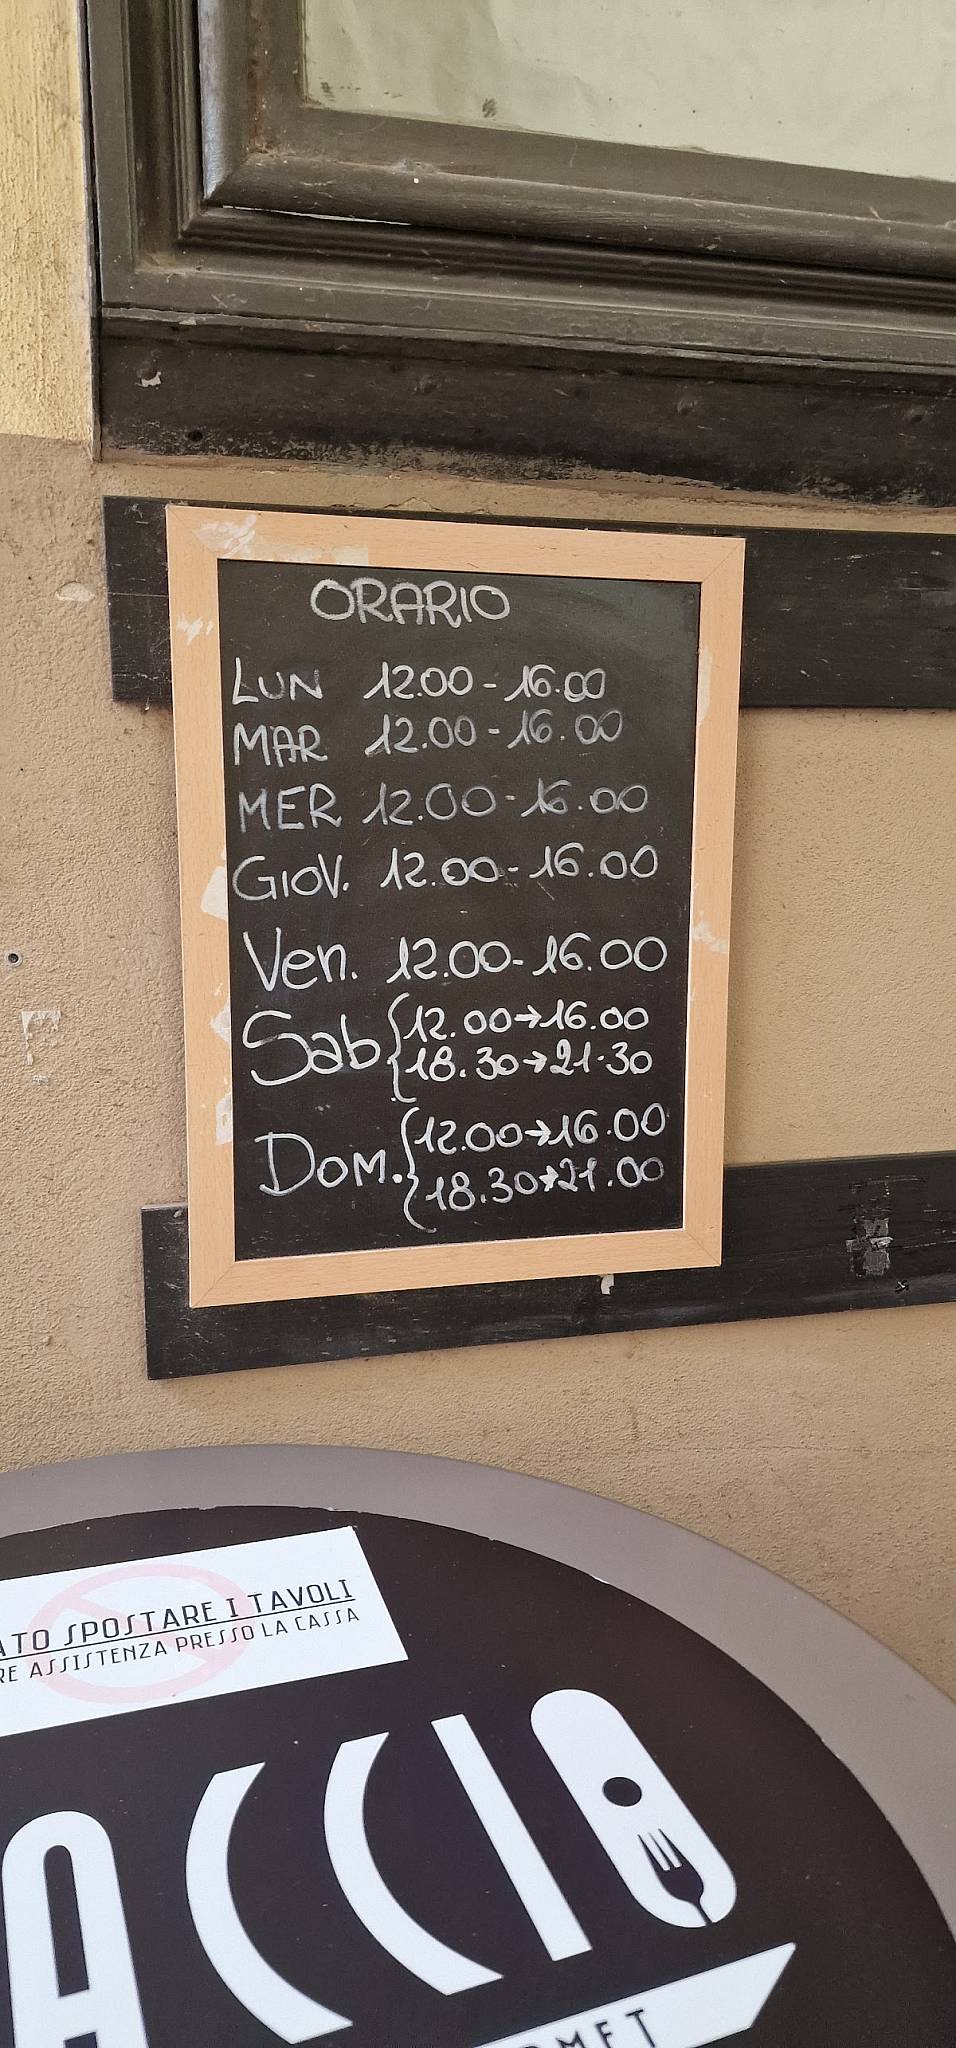 ORARIO
LUN 12.00 - 16.00
MAR 12.00 - 16.00
MER 12.00 - 16.00
GIOV. 12.00 - 16.00
Ven. 12.00 - 16.00
Sab { 12.00 → 16.00
18.30 → 21.30
DOM. { 12.00 → 16.00
18.30 → 21.00
ATO SPOSTARE I TAVOLI
RE ASSISTENZA PRESSO LA CASSA
ACCIO